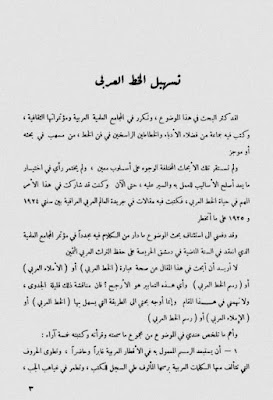 تسهيل الخط العربى
لقد كثر البحث في هذا الموضوع ، وتكرر في المجامع العلمية العربية ومؤتمراتها الثقافية ،
وكتب فيه جماعة من فضلاء الأدباء والخطاطين الراسخين في فن الخط ، من مسهب في بحثه
أو موجز
ولم تستقر تلك الأبحاث المختلفة الوجوه على أسلوب معين ، ولم يختمر رأي في اختيار
ما يعد أصلح الأساليب للعمل به والسير عليه ، حتى الآن وكنت قد شاركت في هذا الأمر
المهم في حياة الخط العربي ، فكتبت فيه مقالات في جريدة العالم العربي العراقية بين سنتي ١٩٢٤
و ١٩٢٥ على ما أتخطر
وقد دعمي الى استئناف بحث الموضوع ما دار من الكلام فيه مجدداً في مؤتمر المجامع العلمية
الذي انعقد في السنة الماضية في دمشق الحريصة على حفظ التراث العربي الثمين
لا أريد أن أبحث في هذا المقال عن صحة عبارة ( الخط العربي ) أو ( الأملاء العربي )
أو ( رسم الخط العربي ) وأي هذه التعابير هو الأرجح ؟ فان مناقشة ذلك قليلة الجدوى ،
ولا تهمني في هذا المقام وإنما أوجه بحثي الى الطريقة التي يسهل بها ( الخط العربي ) أو
( الإملاء العربي ) أو ( رسم الخط العربي )
وأهم ما تلخص عندي في الموضوع من مجموع ما سمعته وقرأته وكتبته خمسة آراء :
١ — أن يستبعد الرسم المعمول به في الأقطار العربية غابراً وحاضراً ، وتطوى الحروف
التي تتألف منها الكلمات العربية برسمها المألوف طي السجل للكتب ، وتطمر في غياهب الجب ،
٣